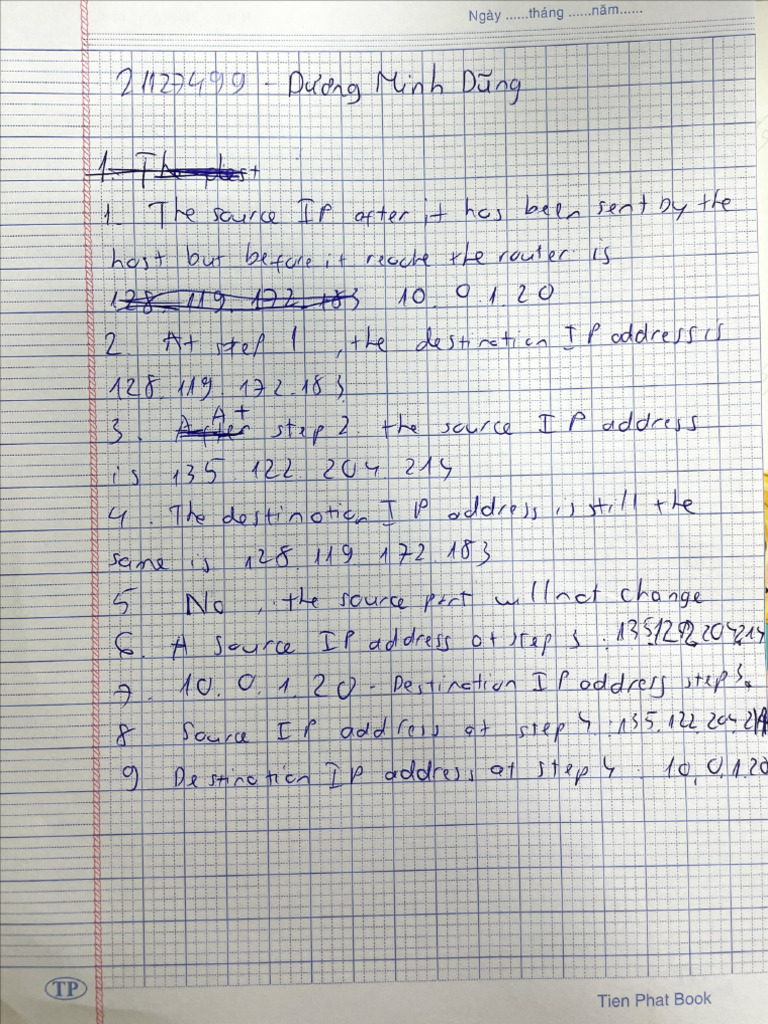 Ngày ......tháng ......năm......
21127499 - Dương Minh Dũng
1. The
1. The source IP after it has been sent by the
host but before it reache the router is
128. 119. 172. 183 10. 0.1.20
2. At step 1, the destination IP address is
128.119.172.183
3. At step 2 the source IP address
is 135.122.204.214
4. The destination IP address is still the
same is 128.119.172.183
5 No, the source port will not change
6. A source IP address at step 3:
7. 10.0.1.20 - Destination IP address step 3.
8 Source IP address at step 4:135.122.204.214
9 Destination IP address at step 4: 10.0.1.20
TP
Tien Phat Book